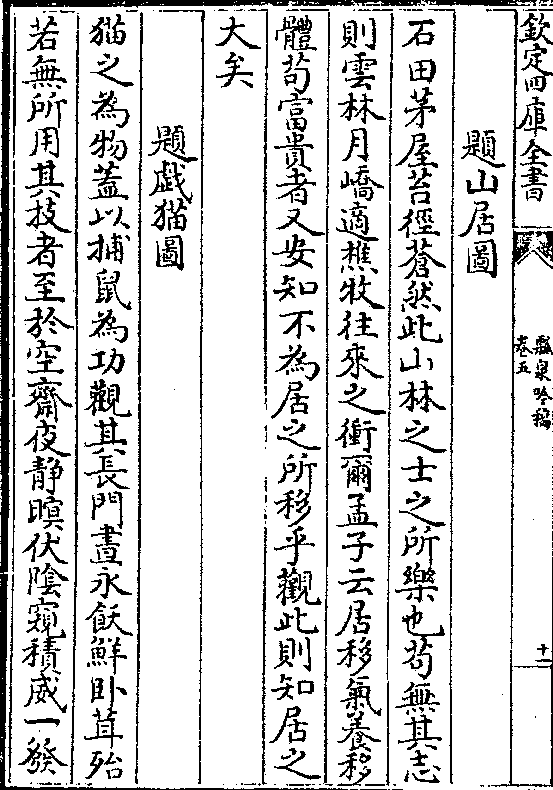 欽定四庫全書
瓢泉吟稿
卷五
十一
題山居圖
石田茅屋苔徑蒼然此山林之士之所樂也苟無其志
則雲林月嶠適樵牧往來之衝爾孟子云居移氣養移
體苟富貴者又安知不為居之所移乎觀此則知居之
大矣
題戯猫圖
猫之為物蓋以捕鼠為功觀其長門晝永飫鮮卧茸殆
若無所用其技者至於空齋夜静瞑伏陰窺積威一發